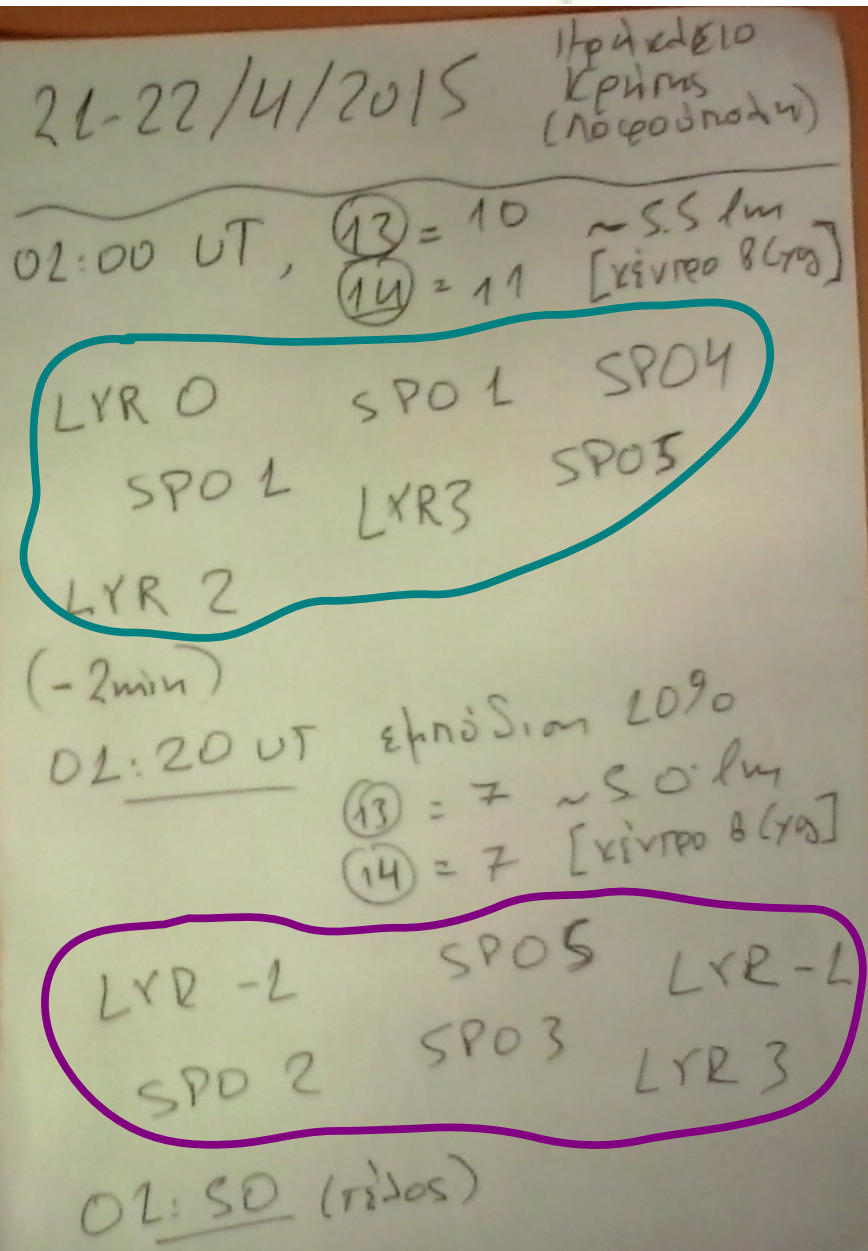 21-22/4/2015
Ηράκλειο
Κρήτης
(Λοφούπολη)
01:00 UT, 13 = 10 ~5.5 lm
14 = 11 [κέντρο βίγας]
LYR 0 SPO 1 SPO4
SPO 1 LYR3 SPO5
LYR 2
(-2min)
01:20 UT εμπόδιση 10%
13 = 7 ~5.0 lm
14 = 7 [κέντρο βίγας]
LYR -1 SPO5 LYR -1
SPO 2 SPO 3 LYR 3
01:50 (τέλος)